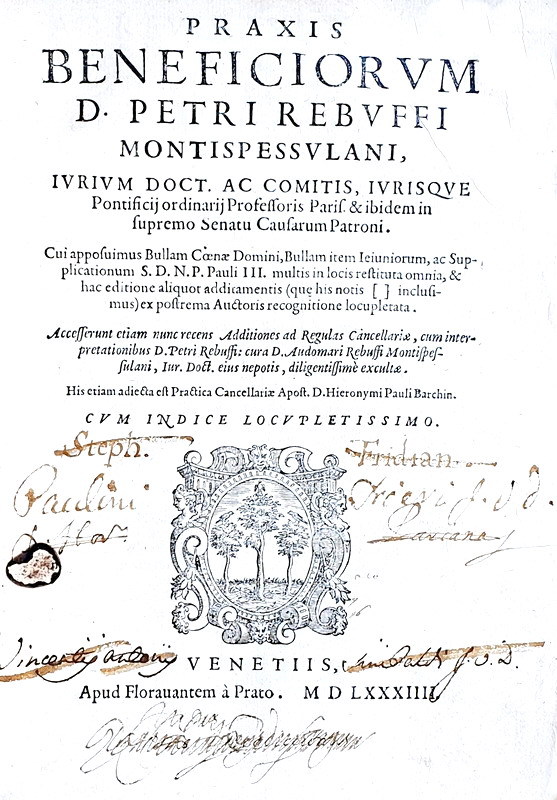 PRAXIS
BENEFICIORVM
D. PETRI REBVFFI
MONTISPESSVLANI,
IVRIVM DOCT. AC COMITIS, IVRISQVE
Pontificij ordinarij Profeſſoris Pariſ. & ibidem in
ſupremo Senatu Cauſarum Patroni.
Cui appoſuimus Bullam Cœnæ Domini, Bullam item Ieiuniorum, ac Sup-
plicationum S. D. N. P. Pauli III. multis in locis reſtituta omnia, &
hac editione aliquot addicamentis (quę his notis [ ] incluſi-
mus) ex poſtrema Auctoris recognitione locupletata.
Acceſſerunt etiam nunc recens Additiones ad Regulas Cancellariæ, cum inter-
pretationibus D. Petri Rebuffi: cura D. Audomari Rebuffi Montiſpeſ-
ſulani, Iur. Doct. eius nepotis, diligentiſſimè excultæ.
His etiam adiecta eſt Practica Cancellariæ Apoſt. D. Hieronymi Pauli Barchin.
CVM INDICE LOCVPLETISSIMO.
Steph. Fridian
Paulini J. V. D.
Vincentij Antonij VENETIIS, J. V. D.
Apud Florauantem à Prato. M D LXXXIIII